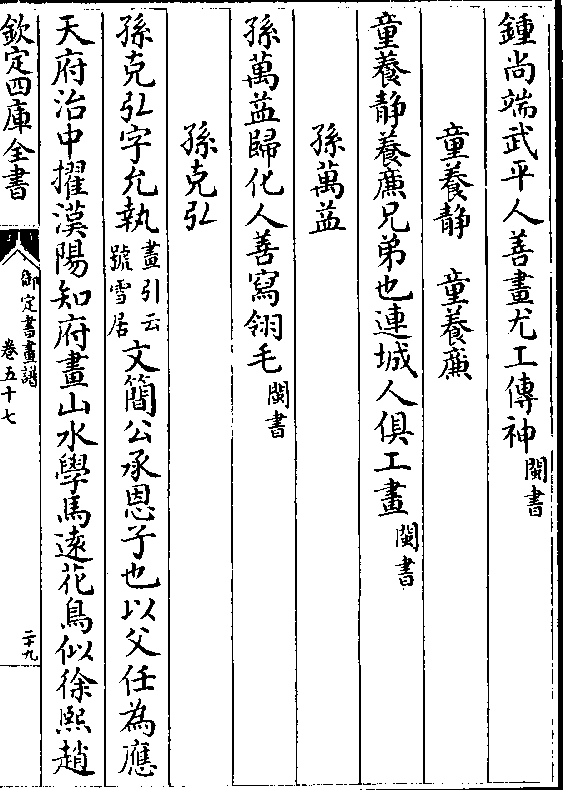 鍾尚端武平人善畫尤工傳神閩書
童養靜　童養㢘
童養靜養㢘兄弟也連城人俱工畫閩書
孫萬益
孫萬益歸化人善寫翎毛閩書
孫克弘
孫克弘字允執畫引云號雪居文簡公承恩子也以父任為應
天府治中擢漢陽知府畫山水學馬逺花鳥似徐熙趙
欽定四庫全書
御定書畫譜
卷五十七
二十九